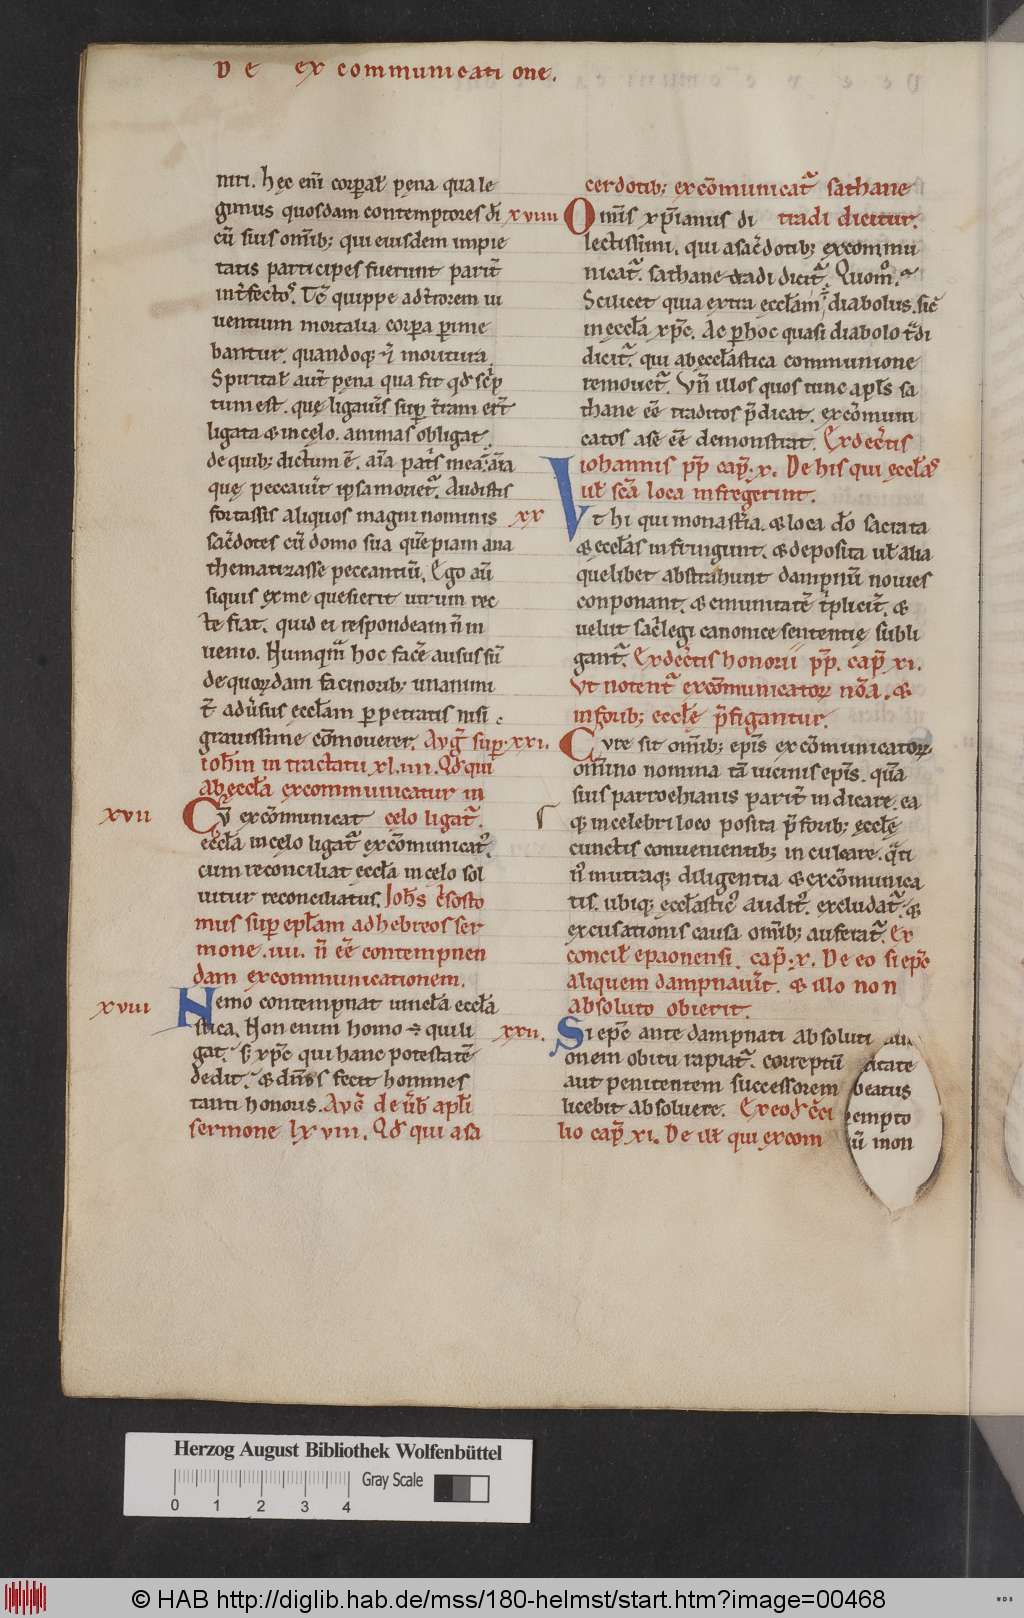 De excommunicatione.
niri. hęc eni͂ corpal̵ pęna qua le
gimus quosdam contemptores di͂
cu͂ suis om͂ib; qui eiusdem impie
tatis participes fuerunt parit͂
int͛fectos. Tc͂ quippe adt͛rorem ui
uentium mortalia corpa pime
bantur. quandoq; ⁊ moritura.
Spiritał aut͂ pęna qua fit qd sc͛p
tum est. quę ligau͛is sup t͛ram er͛t
ligata & in cęlo. animas obligat.
de quib; dictum e͂. aı͂a pat͛s mea. aı͂a
quę peccau͛it ipsa moriet͛. Audistis
fortassis aliquos magni nominis
sac͛dotes cu͂ domo sua que͂piam ana
thematizasse peccantiu͂. Ego au͂
siquis ex me quesierit utrum rec
te fiat. quid ei respondeam n͂ in
uenio. Numqm͂ hoc face͛ ausus su͂
de quorꝝdam facinorib; unanimi
t͛ adu͛sus ecclam perpetratis nisi
grauissime co͂mouerer. Avg͛ sup
ioh͂m in tractatu xl.iiii. Qd qui
ab ęccła excommunicatur in
xvii
Cv͂ exco͂municat celo ligat͛.
ęccła in cęlo ligat͛ exco͂municat͛.
cum reconciliat ęccła in cęlo sol
uitur reconciliatus. Joh͂s c͛sosto
mus sup epłam ad hebreos ser
mone .iiii. n͂ ee͂ contempnen
dam excommunicationem.
xviii
Nemo contempnat uincła ęccła
stica. Non enim homo ÷ qui li
gat. s; xp͂c qui hanc potestate͂
dedit. & dn͂s fecit homines
tanti honoris. Avg͛ de u͛b apłi
sermone lxviii. Qd qui a sa
cerdotib; exco͂municat͛ sathane
xviiii
Omis xp͂ianus di tradi dicitur.
lectissimi. qui a sac͛dotib; excommu
nicat͛. sathane tradi dicit͛. Quom͛.
Scilicet quia extra ęccłam diabolus. sic͂
in ęccła xp͂c. Ac p hoc quasi diabolo t͛di
dicit͛. qui ab ęccłastica communione
remouet͛. Vn͂ illos quos tunc apłs sa
thane ee͂ traditos p͂dicat. exco͂muni
catos a se ee͂ demonstrat. Ex dec͛tis
iohannis pp cap͛. x. De his qui ęccłas
uł sc͂a loca infregerint.
xx
Vt hi qui monast͛ia. & loca do͂ sacrata
& ęccłas infringunt. & deposita uł alia
quelibet abstrahunt dampnu͂ nouies
conponant. & emunitate͂ t͛pliciť. &
uelut sac͛legi canonice sententię subli
gant͛. Ex dec͛tis honorii pp. cap͛ xi.
Vt notent͛ exco͂municatorꝝ no͂a. &
in forib; ęccłę p͂figantur.
xxi.
Cvre sit om͂ib; ep͂is exco͂municatorꝝ
om͂ino nomina ta͂ uicinis ep͂is. qua͂
suis parrochianis parit͛ indicare. ea
q; in celebri loco posita p͂ forib; ęccłę
cunctis conuenientib; inculcare. q͛ti
n͛ mutraq; diligentia & exco͂munica
tis. ubiq; ęccłastic͛ adit͛. excludat͛. &
excusationis causa om͂ib; auferat͛. Ex
concil̵ epaonensi. cap͛. x. De eo si ep͂c
aliquem dampnau͛it. & illo non
absoluto obierit.
xxii.
Si ep͂c ante dampnati absoluti
onem obitu rapiat͛. correptu͂
aut penitentem successorem
licebit absoluere. Ex eod c͛ci
lio cap͛ xi. De illꝭ qui excom
icate
beatus
empto
u͂ mon
Herzog August Bibliothek Wolfenbüttel
Gray Scale
0 1 2 3 4
© HAB http://diglib.hab.de/mss/180-helmst/start.htm?image=00468